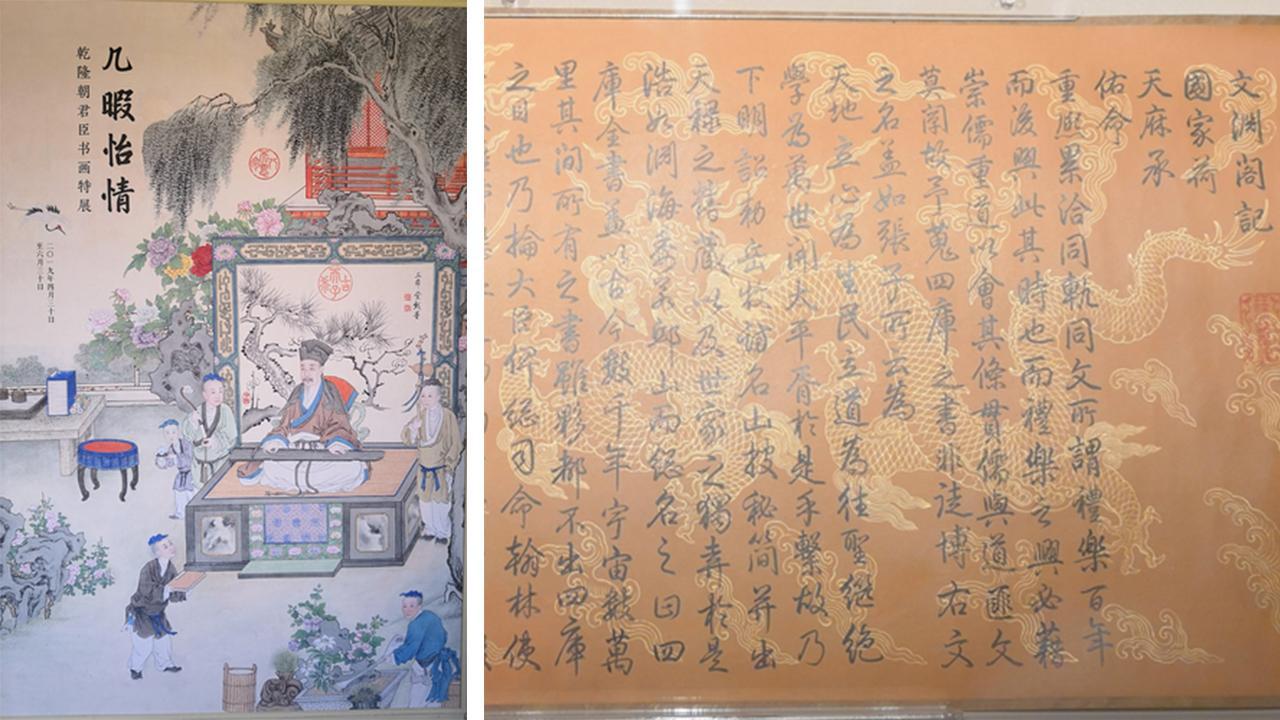 几暇怡情
乾隆朝君臣书画特展
二〇一九年四月三十日
至六月三十日
文渊阁記
國家荷
天庥承
佑命
重熙累洽同軌同文所謂禮樂百年
而後興此其時也而禮樂之興必藉
崇儒重道以會其條貫儒與道匪文
莫闡故予蒐四庫之書非徒博右文
之名蓋如張子所云為
天地立心為生民立道為往聖繼絕
學為萬世開太平胥於是乎繫故乃
下明詔勅岳牧訪名山搜秘簡并出
天祿之舊藏以及世家之獨弆於是
浩如渊海委若邱山而總名之曰四
庫全書蓋以古今數千年宇宙數萬
里其間所有之書雖夥都不出四庫
之目也乃掄大臣俾總司命翰林使